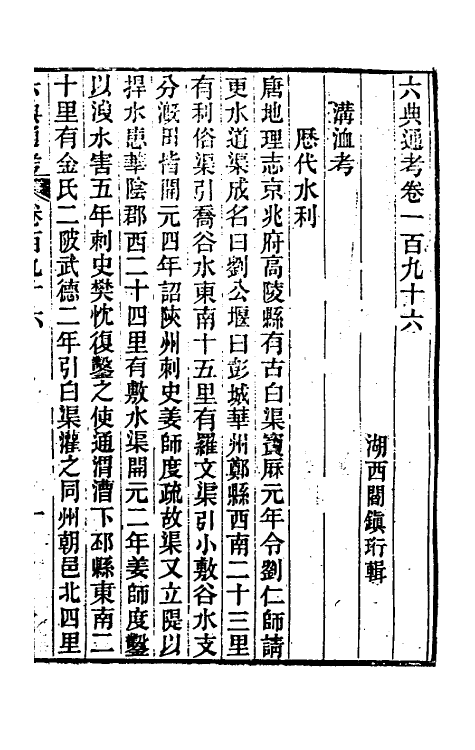 六典通考卷一百九十六
湖西閻鎮珩輯
溝洫考
歷代水利
唐地理志京兆府高陵縣有古白渠寶厤元年令劉仁師請
更水道渠成名曰劉公堰曰彭城華州鄭縣西南二十三里
有利俗渠引喬谷水東南十五里有羅文渠引小敷谷水支
分溉田皆開元四年詔陝州刺史姜師度疏故渠又立隄以
捍水患華陰郡西二十四里有敷水渠開元二年姜師度鑿
以浚水害五年刺史樊忱復鑿之使通渭漕下邳縣東南二
十里有金氏二陂武德二年引白渠灌之同州朝邑北四里
六典通考 卷百九十六 一